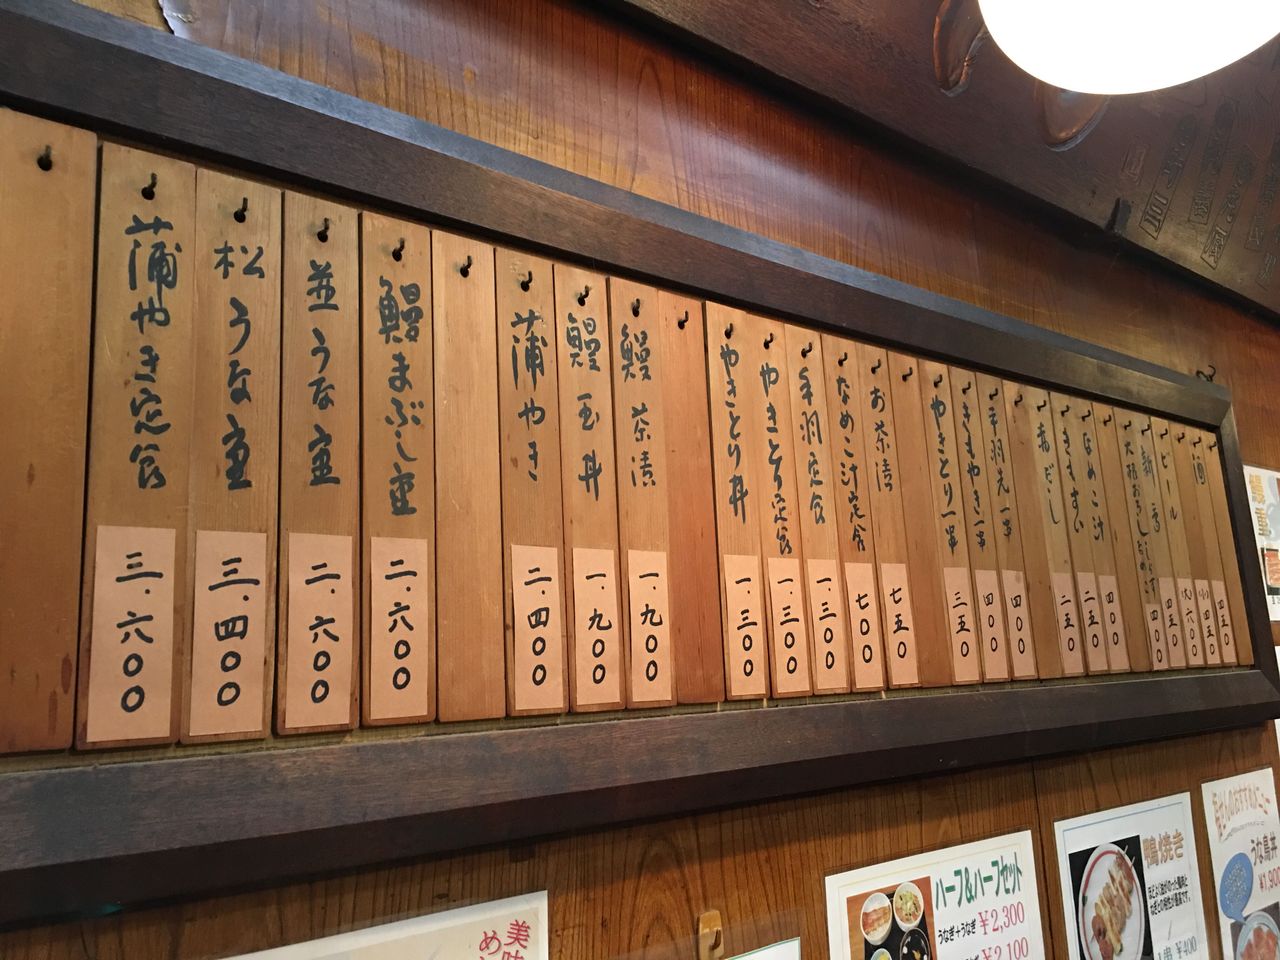 蒲やき定食 三.六〇〇
松うな重 三.四〇〇
並うな重 二.六〇〇
鰻まぶし重 二.六〇〇
蒲やき 二.四〇〇
鰻玉丼 一.九〇〇
鰻茶漬 一.九〇〇
やきとり丼 一.三〇〇
やきとり定食 一.三〇〇
手羽定食 一.三〇〇
なめこ汁定食 七〇〇
お茶漬 七五〇
やきとり一串 三五〇
きもやき一串 四〇〇
手羽先一串 四〇〇
赤だし 二五〇
きもすい 二五〇
なめこ汁 四〇
四〇〇
ビール
酒
四五〇
美味
ハーフ&ハーフセット
うなぎ+うなぎ ¥2,300
¥2,100
鴨焼き
1串 ¥400
うな鳥丼
¥1,900
鰻重